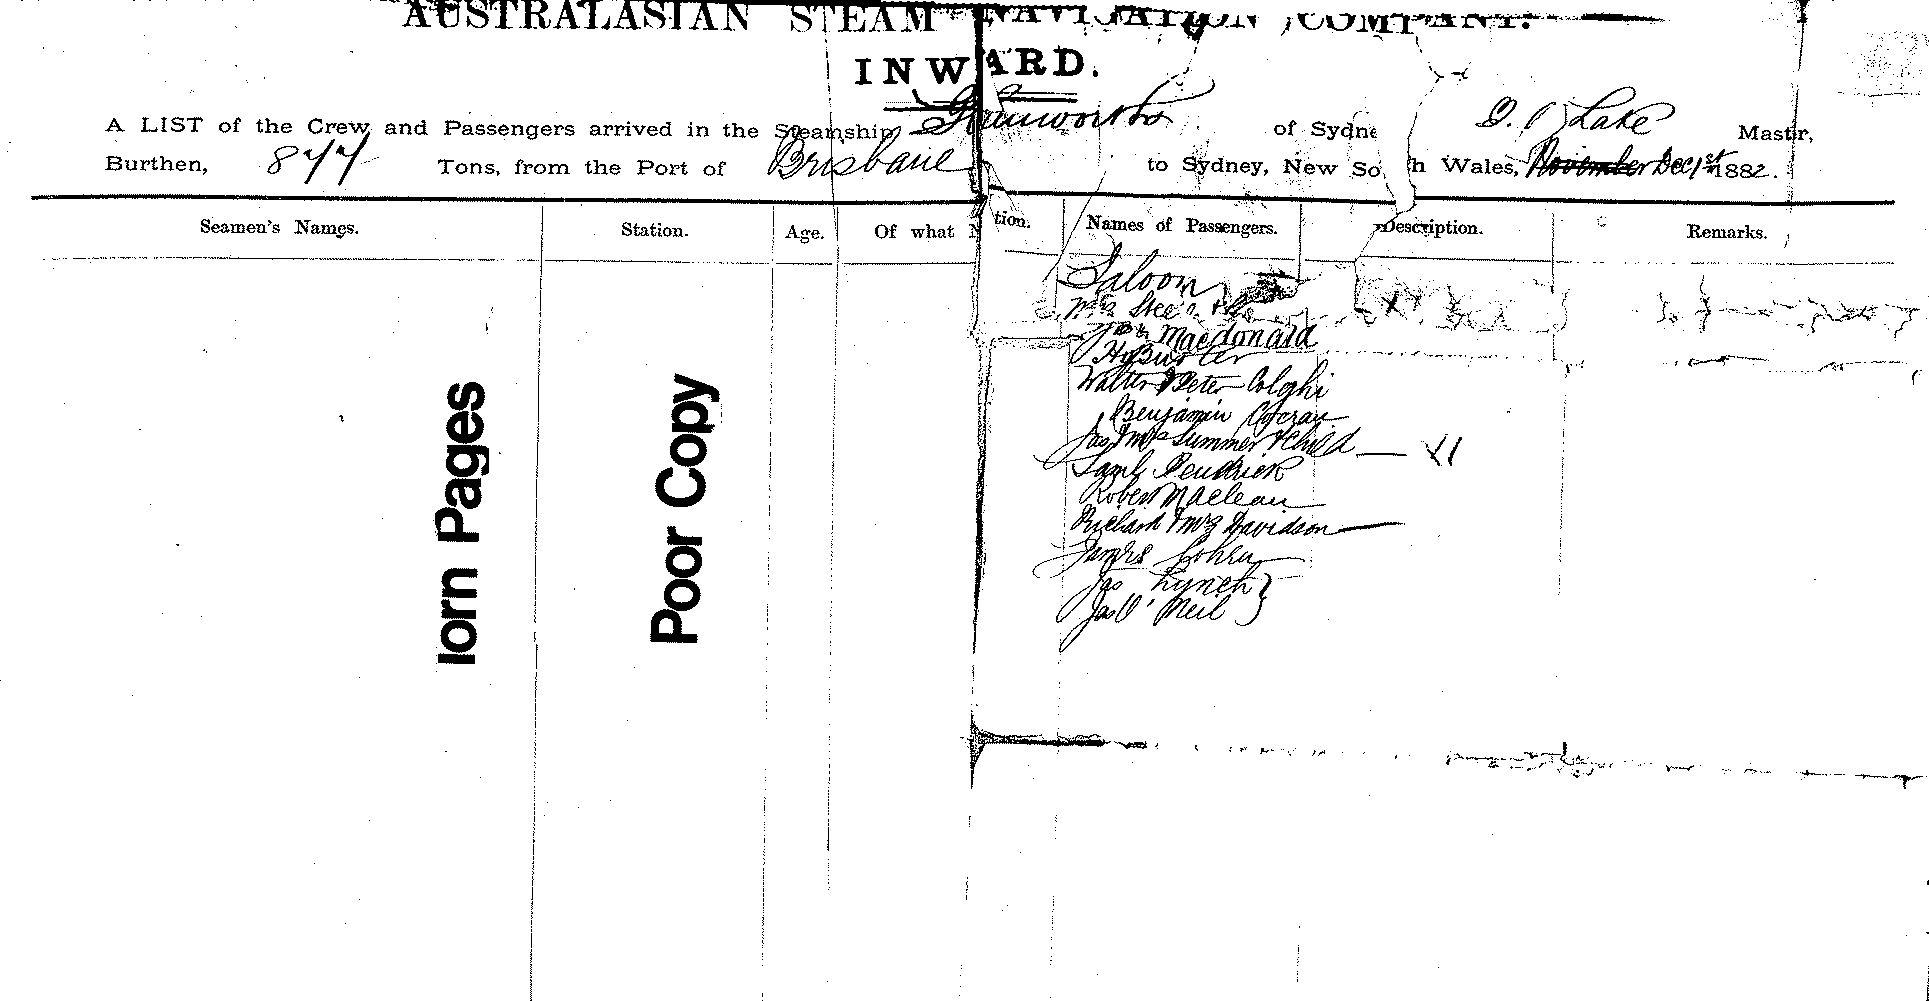 AUSTRALASIAN STEAM NAVIGATION COMPANY.
INWARD.
A LIST of the Crew and Passengers arrived in the Steamship of Sydne Lake Master,
Burthen, 877 Tons, from the Port of Brisbane to Sydney, New So h Wales, November Dec 1st 1882.
Seamen's Names. Station. Age. Of what N tion. Names of Passengers. Description. Remarks.
Saloon
Macdonald
Hy Butler
Walter Peter
Benjamin
Jas & Mrs Summer & Child
Saml
Robert Maclean
Richard & Mrs Davidson
James
Jas Lynch }
Jas O'Neil }
Torn Pages
Poor Copy